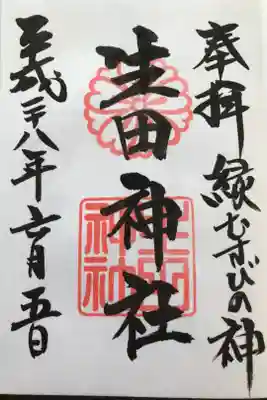 奉拝 縁むすびの神
生田神社
平成二十八年六月五日